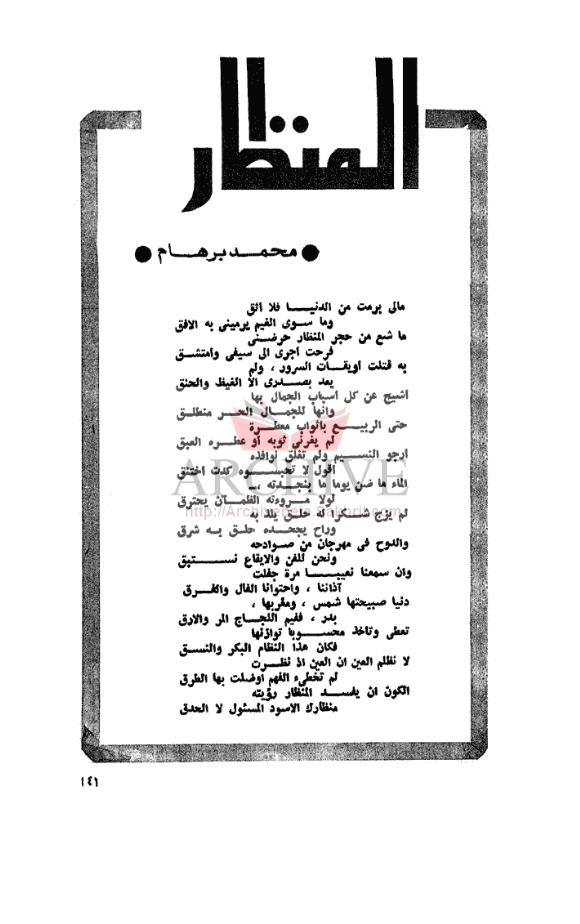 المنظار
● محمد برهام ●
مالى برمت من الدنيا فلا أثق
وما سوى الغيم يرمينى به الافق
ما شع من حجر المنظار حرضنى
فرحت أجرى الى سيفى وأمتشق
به قتلت أويقات السرور ، ولم
يعد بصدرى الا الغيظ والحنق
أشيح عن كل أسباب الجمال بها
وانها للجمال الحر منطلق
حتى الربيع بأثواب معطرة
لم يغرنى ثوبه أو عطره العبق
أرجو النسيم ولم تغلق نوافذه
أقول لا تحبسوه كدت أختنق
الماء ما ضن يوما بنجدته ..
لولا مروءته الظمآن يحترق
لم يزج شكرا له حلق يلذ به
وراح يجحده حلق به شرق
والدوح فى مهرجان من صوادحه
ونحن للفن والايقاع نستبق
وان سمعنا نعيبا مرة جفلت
آذاننا ، واحتوانا الفال والفرق
دنيا صبيحتها شمس ، ومغربها ،
بدر ، ففيم اللجاج المر والارق
تعطى وتأخذ محسوبا توازنها
فكان هذا النظام البكر والنسق
لا نظلم العين ان العين اذ نظرت
لم تخطىء الفهم أوضلت بها الطرق
الكون ان يفسد المنظار رؤيته
منظارك الاسود المسئول لا الحدق
ARCHIVE
http://Archivebeta.Sakhrit.com
١٤١